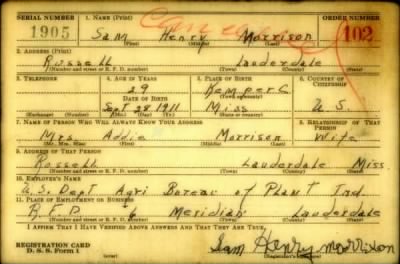 SERIAL NUMBER 1. NAME (Print) ORDER NUMBER
1905 Sam Henry Morrison 102
(First) (Middle) (Last)
2. ADDRESS (Print)
Russell Lauderdale
(Number and street or R. F. D. number) (Town) (County) (State)
3. TELEPHONE 4. AGE IN YEARS 5. PLACE OF BIRTH 6. COUNTRY OF CITIZENSHIP
29 Kemper C
DATE OF BIRTH (Town or county)
Sept 28 1911 Miss U. S.
(Exchange) (Number) (Mo.) (Day) (Yr.) (State or country)
7. NAME OF PERSON WHO WILL ALWAYS KNOW YOUR ADDRESS 8. RELATIONSHIP OF THAT PERSON
Mrs. Addie Morrison Wife
(Mr., Mrs., Miss) (First) (Middle) (Last)
9. ADDRESS OF THAT PERSON
Russell Lauderdale Miss.
(Number and street or R. F. D. number) (Town) (County) (State)
10. EMPLOYER'S NAME
U.S. Dept Agri Bureau of Plant Ind
11. PLACE OF EMPLOYMENT OR BUSINESS
R.F.D 6 Meridian Lauderdale
(Number and street or R. F. D. number) (Town) (County) (State)
I AFFIRM THAT I HAVE VERIFIED ABOVE ANSWERS AND THAT THEY ARE TRUE.
REGISTRATION CARD
D. S. S. Form 1 Sam Henry Morrison
(over) (Registrant's signature)